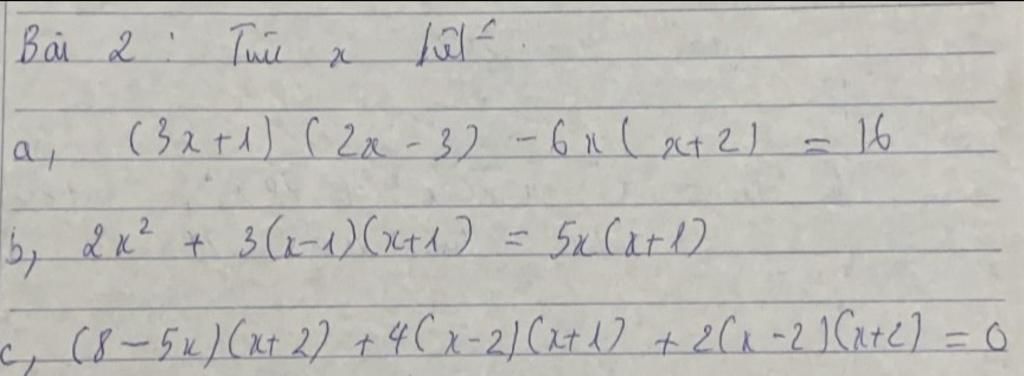 Bài 2 : Tìm x biết :
a, (3x+1) (2x - 3) - 6x( x+2) = 16
b, 2x² + 3(x-1)(x+1) = 5x(x+1)
c, (8-5x)(x+2) + 4(x-2)(x+1) + 2(x-2)(x+2) = 0